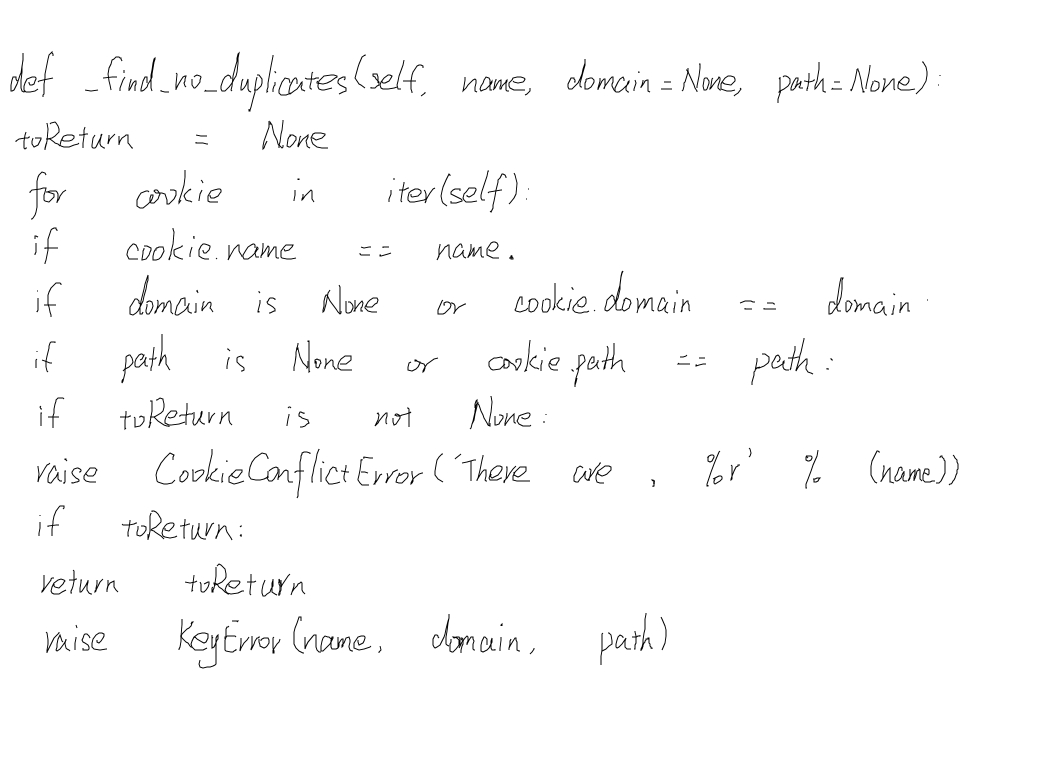 def _find_no_duplicates(self, name, domain=None, path=None):
toReturn = None
for cookie in iter(self):
if cookie.name == name.
if domain is None or cookie.domain == domain.
if path is None or cookie.path == path:
if toReturn is not None:
raise CookieConflictError('There are , %r' % (name))
if toReturn:
return toReturn
raise KeyError(name, domain, path)